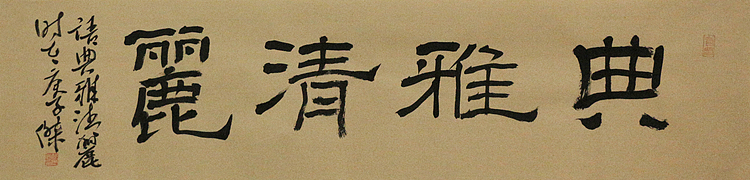 典雅清麗
語典雅清麗
时在庚子傑